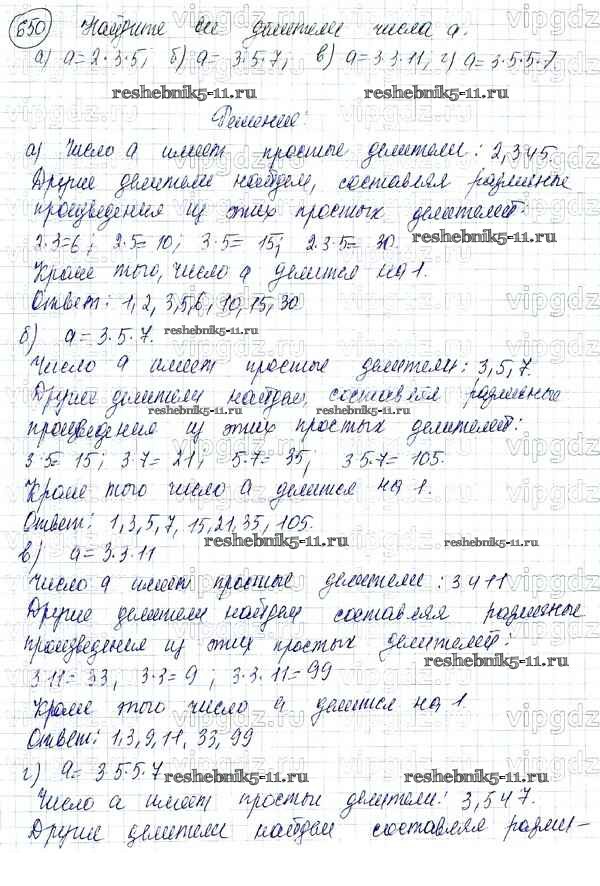 650 Найдите все делители числа а.
а) а=2·3·5; б) а= 3·5·7; в) а=3·3·11, г) а=3·5·5·7
reshebnik5-11.ru reshebnik5-11.ru
Решение:
а) Число а имеет простые делители: 2,3 и 5.
Другие делители найдем, составляя различные
произведения из этих простых делителей.
2·3=6; 2·5=10; 3·5=15; 2·3·5=30. reshebnik5-11.ru
Кроме того, число а делится на 1.
Ответ: 1,2,3,5,6,10,15,30
б) а=3·5·7. reshebnik5-11.ru
Число а имеет простые делители: 3,5,7.
Другие делители найдем, составляя различные
reshebnik5-11.ru reshebnik5-11.ru
произведения из этих простых делителей:
3·5=15; 3·7=21; 5·7=35; 3 5·7=105.
Кроме того число а делится на 1.
Ответ: 1,3,5,7, 15,21,35, 105.
reshebnik5-11.ru
в) а=3·3·11
Число а имеет простые делители: 3 и 11
Другие делители найдем составляя различные
произведения из этих простых делителей:
reshebnik5-11.ru
3·11=33, 3·3=9, 3·3·11=99
Кроме того число а делится на 1.
Ответ: 1,3,9,11, 33,99
г) а=3 5·5·7 reshebnik5-11.ru reshebnik5-11.ru
Число а имеет простые делители: 3,5 и 7.
Другие делители найдем составляя разли-
vipgdz.ru